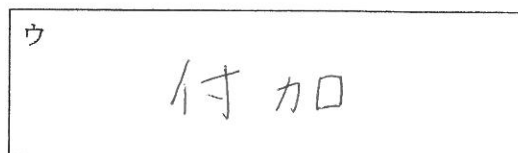 ウ
付加